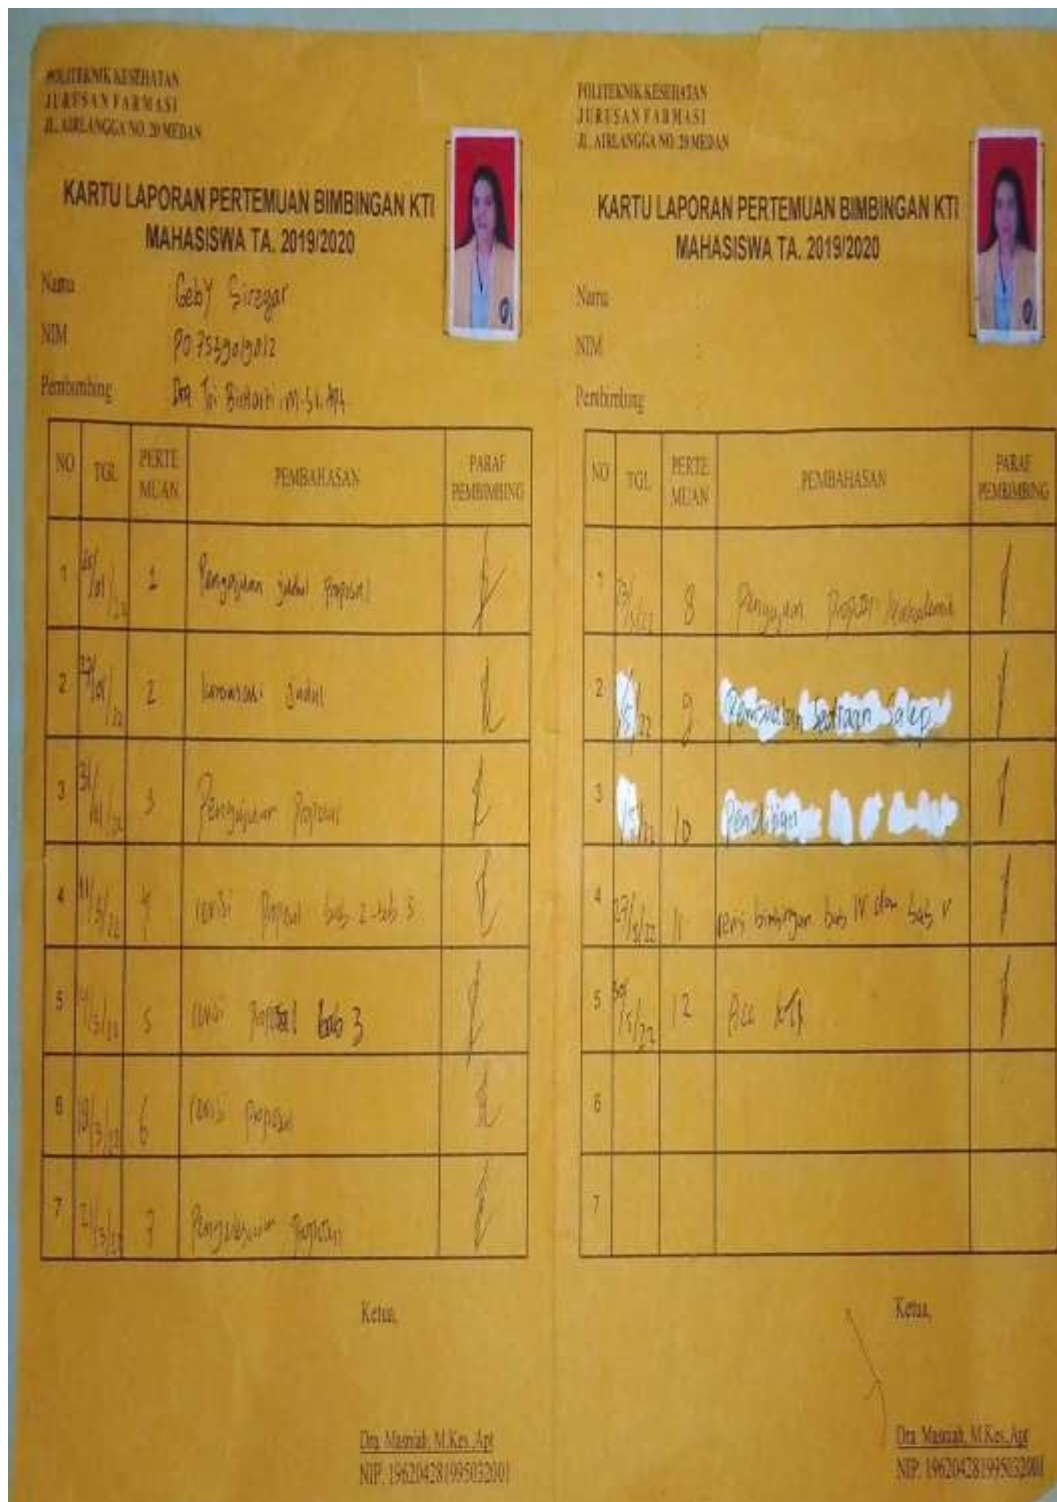 POLITEKNIK KESEHATAN
JURUSAN FARMASI
JL. AIRLANGGA NO. 20 MEDAN
KARTU LAPORAN PERTEMUAN BIMBINGAN KTI
MAHASISWA TA. 2019/2020
Nama : Geby Siregar
NIM
Pembimbing
NO TGL PERTE MUAN PEMBAHASAN PARAF PEMBIMBING
1 1 Pengajuan judul proposal
2 2 judul
3 3 Pengajuan Proposal
4 11/3/22 4 revisi proposal bab 2 - bab 3
5 5 revisi proposal bab 3
6 18/3/22 6 revisi proposal
7 21/3/22 7
Ketua,
Dra. Masniah, M.Kes, Apt
NIP. 196204281995032001
POLITEKNIK KESEHATAN
JURUSAN FARMASI
JL. AIRLANGGA NO. 20 MEDAN
KARTU LAPORAN PERTEMUAN BIMBINGAN KTI
MAHASISWA TA. 2019/2020
Nama :
NIM :
Pembimbing :
NO TGL PERTE MUAN PEMBAHASAN PARAF PEMBIMBING
1 8
2 /5/22 9 Pembuatan Sediaan Salep
3 /5/22 10 Penelitian
4 27/5/22 11 revisi bimbingan bab IV dan bab V
5 30/5/22 12 Acc KTI
6
7
Ketua,
Dra. Masniah, M.Kes, Apt
NIP. 196204281995032001